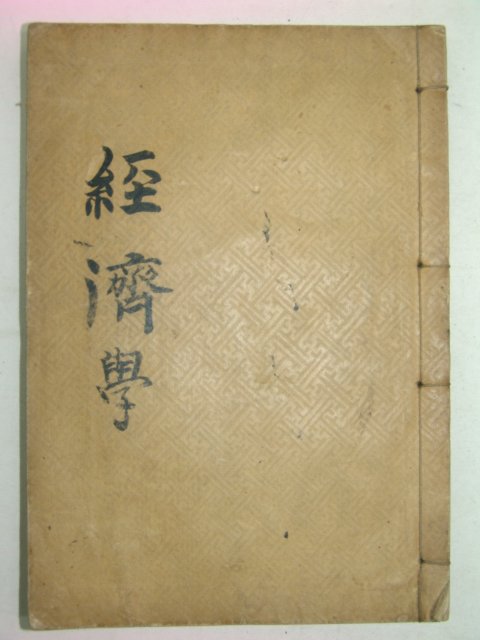 經濟學